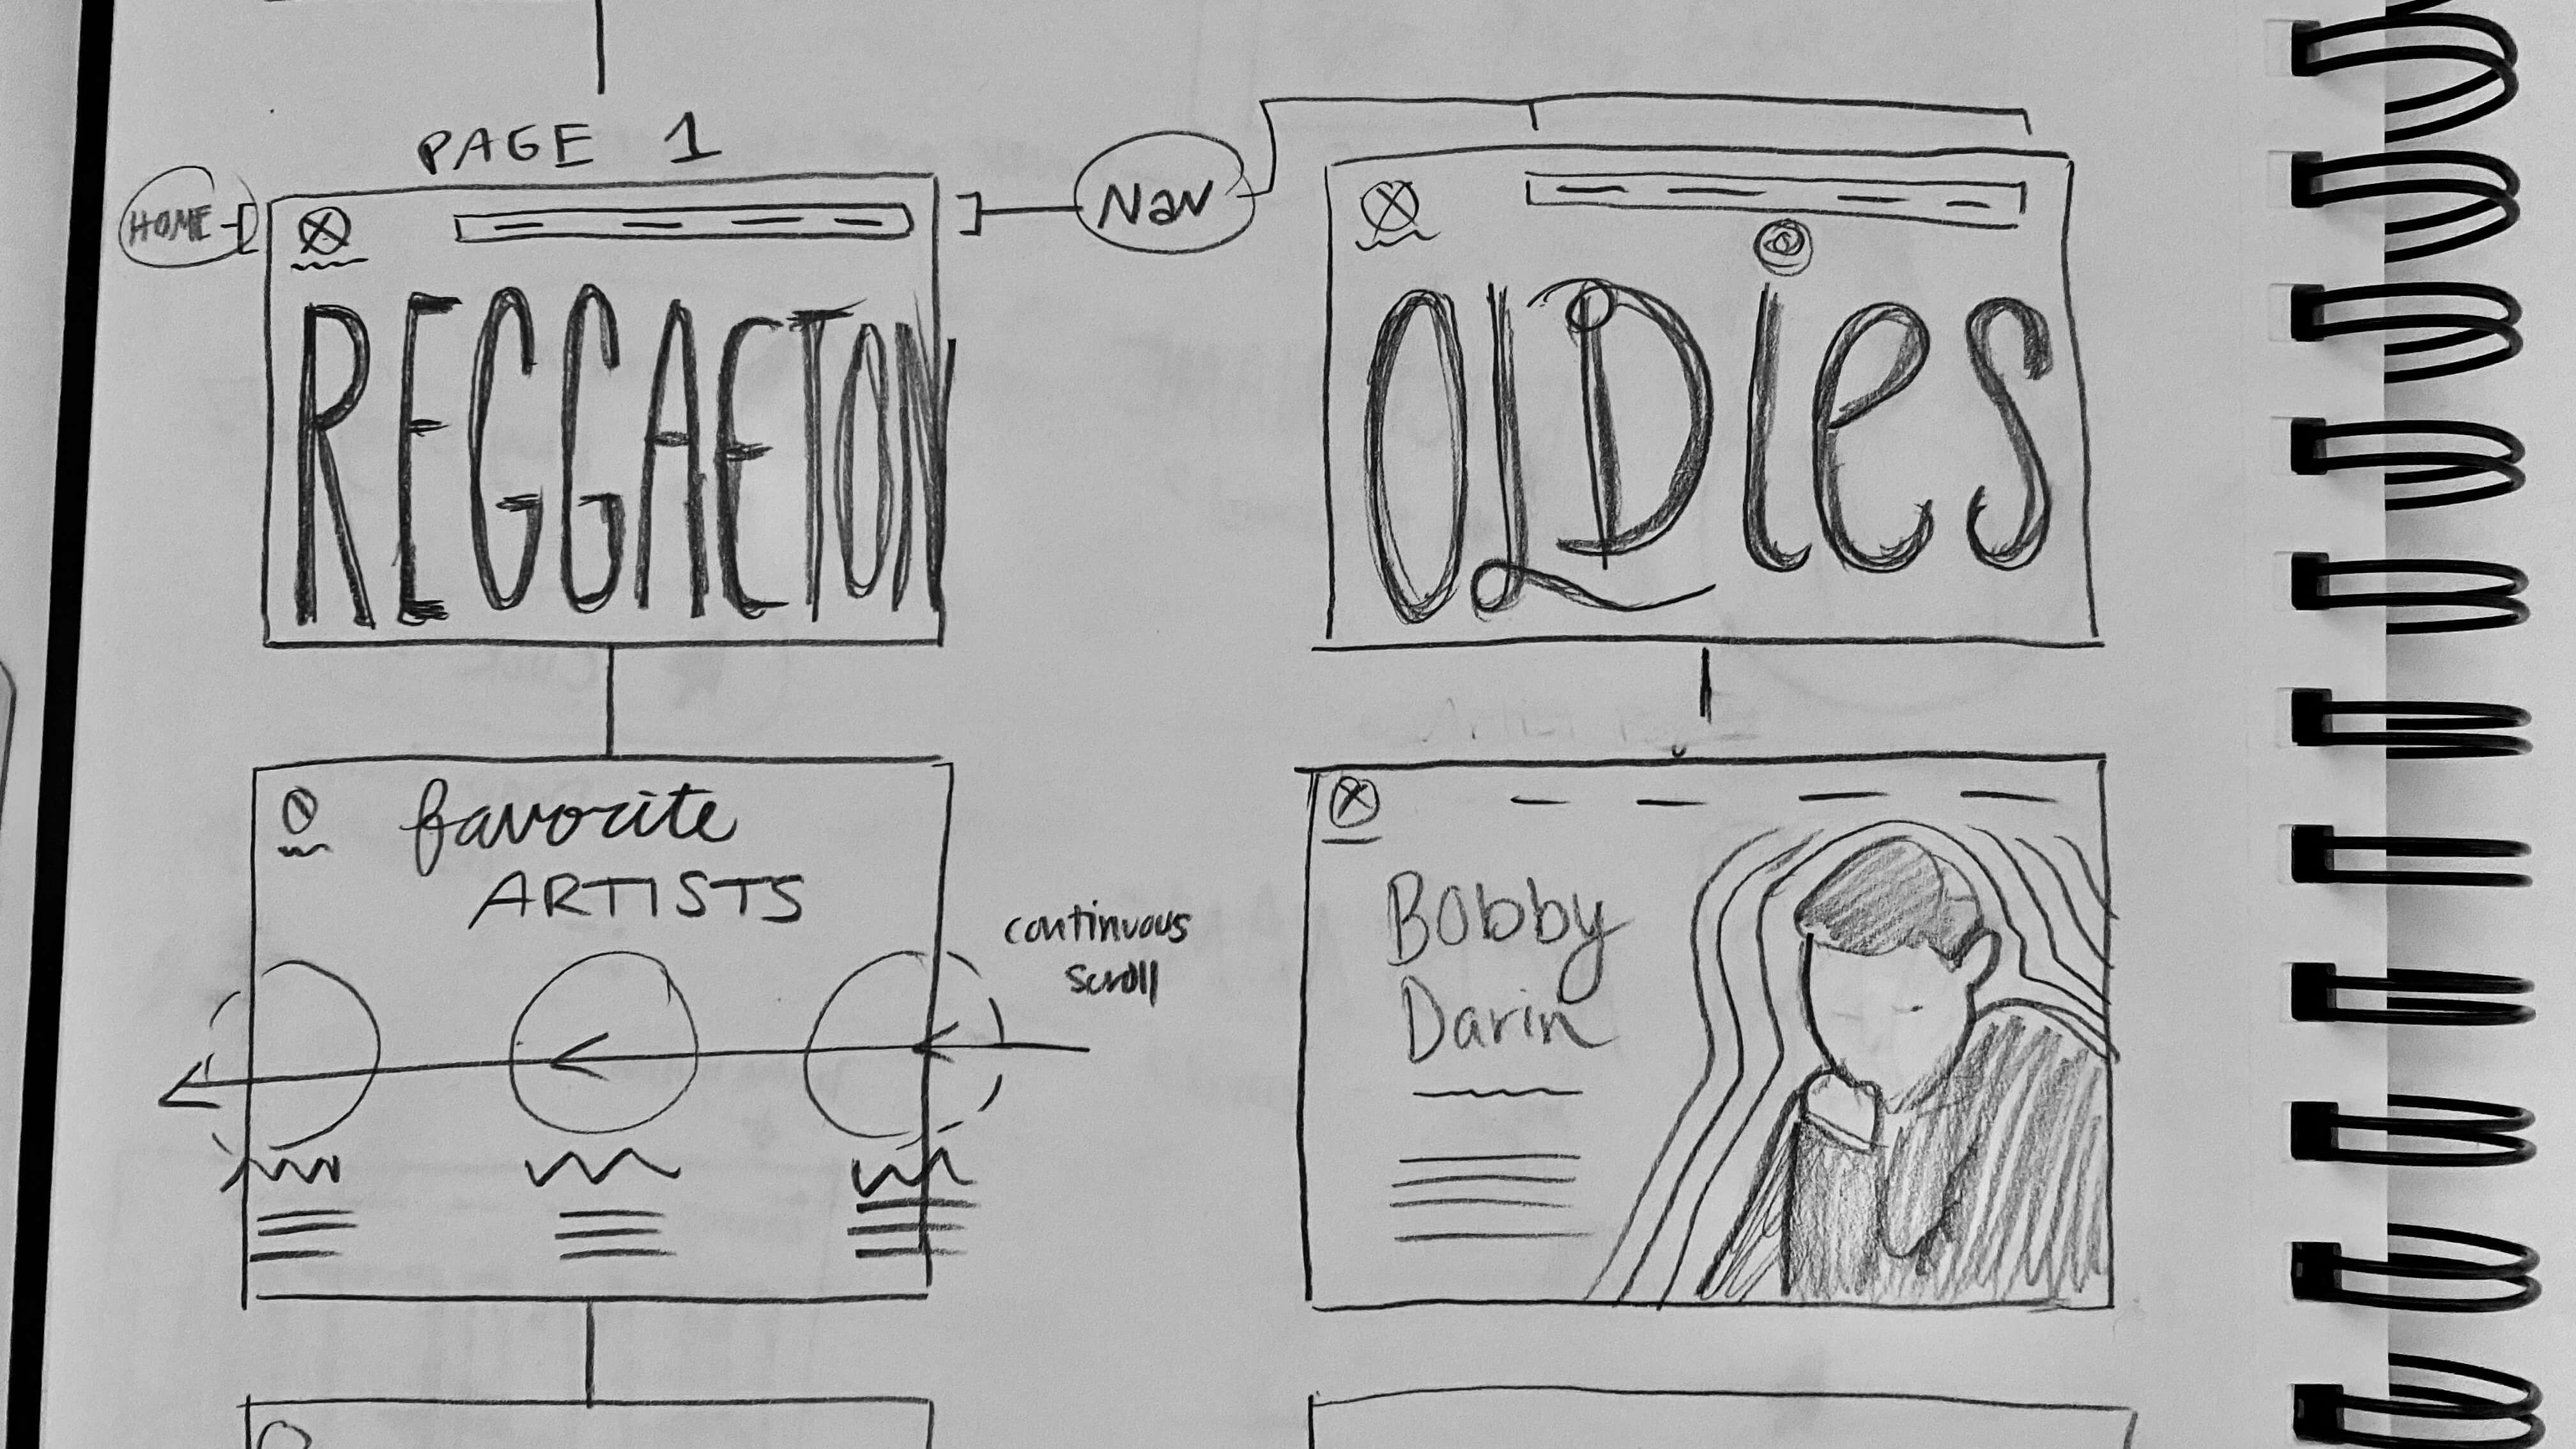 PAGE 1
HOME
Nav
REGGAETON
OLDies
favorite
ARTISTS
continuous
scroll
Bobby
Darin